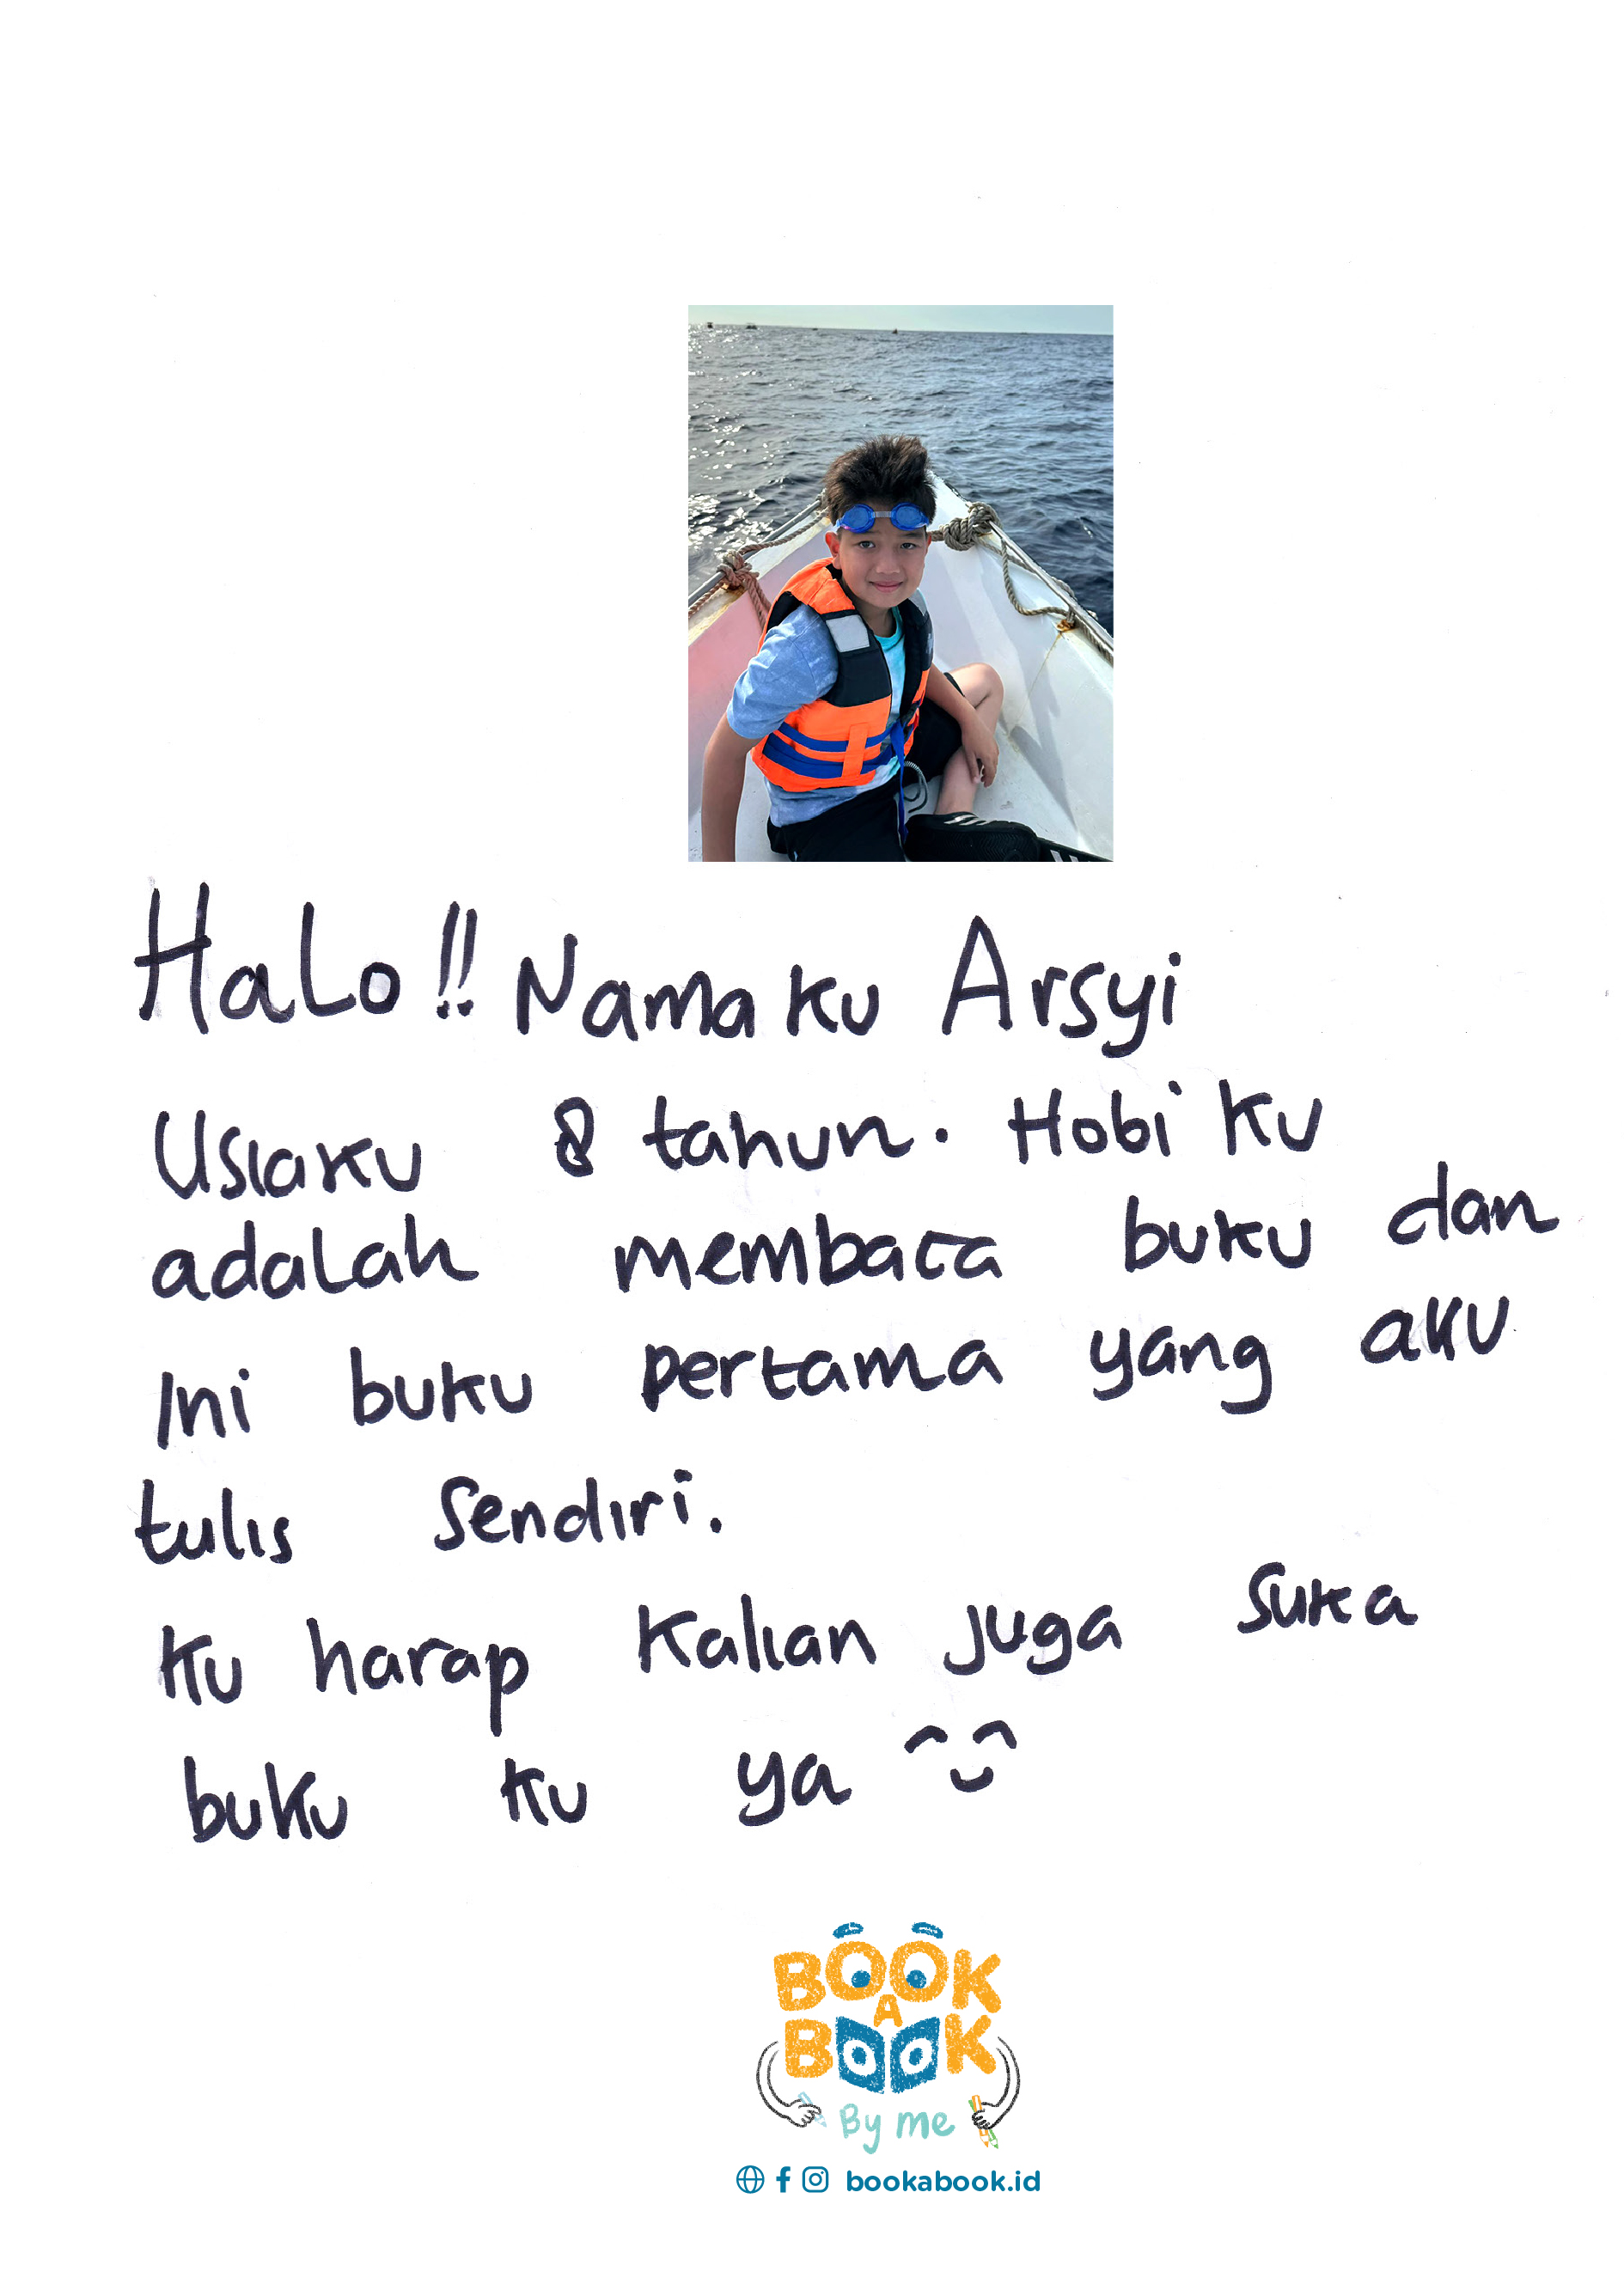 Halo!! Namaku Arsyi
Usiaku 8 tahun. Hobi ku
adalah membaca buku dan
Ini buku pertama yang aku
tulis sendiri.
Ku harap kalian juga suka
buku ku ya
BOOK
A
BOOK
By me
bookabook.id